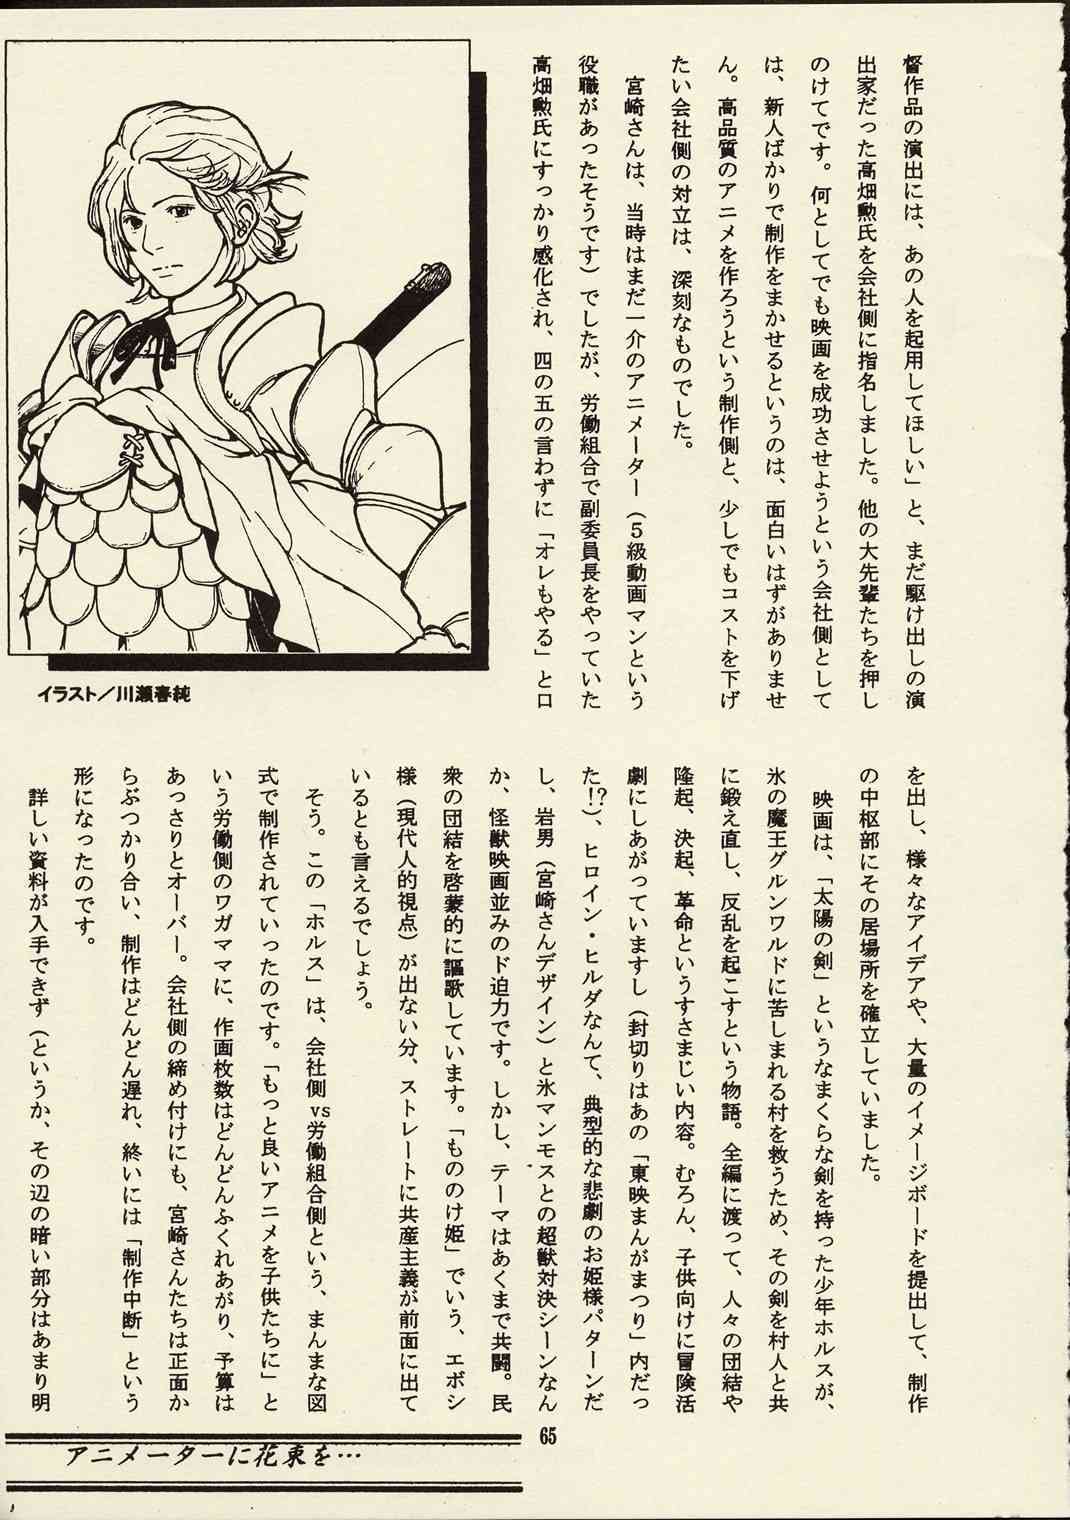 督作品の演出には、あの人を起用してほしい」と、まだ駆け出しの演
出家だった高畑勲氏を会社側に指名しました。他の大先輩たちを押し
のけてです。何としてでも映画を成功させようという会社側として
は、新人ばかりで制作をまかせるというのは、面白いはずがありませ
ん。高品質のアニメを作ろうという制作側と、少しでもコストを下げ
たい会社側の対立は、深刻なものでした。
宮崎さんは、当時はまだ一介のアニメーター（5級動画マンという
役職があったそうです）でしたが、労働組合で副委員長をやっていた
高畑勲氏にすっかり感化され、四の五の言わずに「オレもやる」と口
イラスト／川瀬春純
を出し、様々なアイデアや、大量のイメージボードを提出して、制作
の中枢部にその居場所を確立していました。
映画は、「太陽の剣」というなまくらな剣を持った少年ホルスが、
氷の魔王グルンワルドに苦しまれる村を救うため、その剣を村人と共
に鍛え直し、反乱を起こすという物語。全編に渡って、人々の団結や
隆起、決起、革命というすさまじい内容。むろん、子供向けに冒険活
劇にしあがっていますし（封切りはあの「東映まんがまつり」内だっ
た!?）、ヒロイン・ヒルダなんて、典型的な悲劇のお姫様パターンだ
し、岩男（宮崎さんデザイン）と氷マンモスとの超獣対決シーンなん
か、怪獣映画並みのド迫力です。しかし、テーマはあくまで共闘。民
衆の団結を啓蒙的に謳歌しています。「もののけ姫」でいう、エボシ
様（現代人的視点）が出ない分、ストレートに共産主義が前面に出て
いるとも言えるでしょう。
そう。この「ホルス」は、会社側vs労働組合側という、まんまな図
式で制作されていったのです。「もっと良いアニメを子供たちに」と
いう労働側のワガママに、作画枚数はどんどんふくれあがり、予算は
あっさりとオーバー。会社側の締め付けにも、宮崎さんたちは正面か
らぶつかり合い、制作はどんどん遅れ、終いには「制作中断」という
形になったのです。
詳しい資料が入手できず（というか、その辺の暗い部分はあまり明
65
アニメーターに花束を…